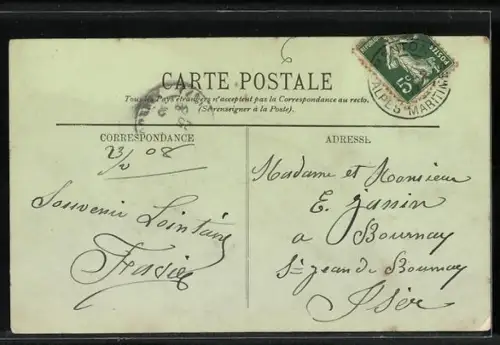 CARTE POSTALE
Tous les Pays étrangers n'acceptent pas la Correspondance au recto.
(Se renseigner à la Poste).
CORRESPONDANCE
ADRESSE
23/2 08
Souvenir Lointain
Madame et Monsieur
E. Janin
a Bournay
St jean de Bournay
Isèr
5c
ALPES MARITIME